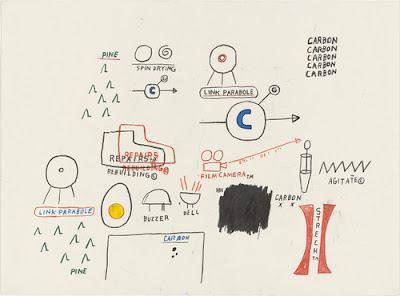 PINE
SPIN DRYING
C
LINK PARABOLE
C
CARBON
CARBON
CARBON
CARBON
CARBON
REPAIRS
REPAIRS
REBUILDING
REBUILDING
FILM CAMERA™
AGITATE
LINK PARABOLE
BUZZER
BELL
CARBON
X X
STRECH™
CARBON
PINE